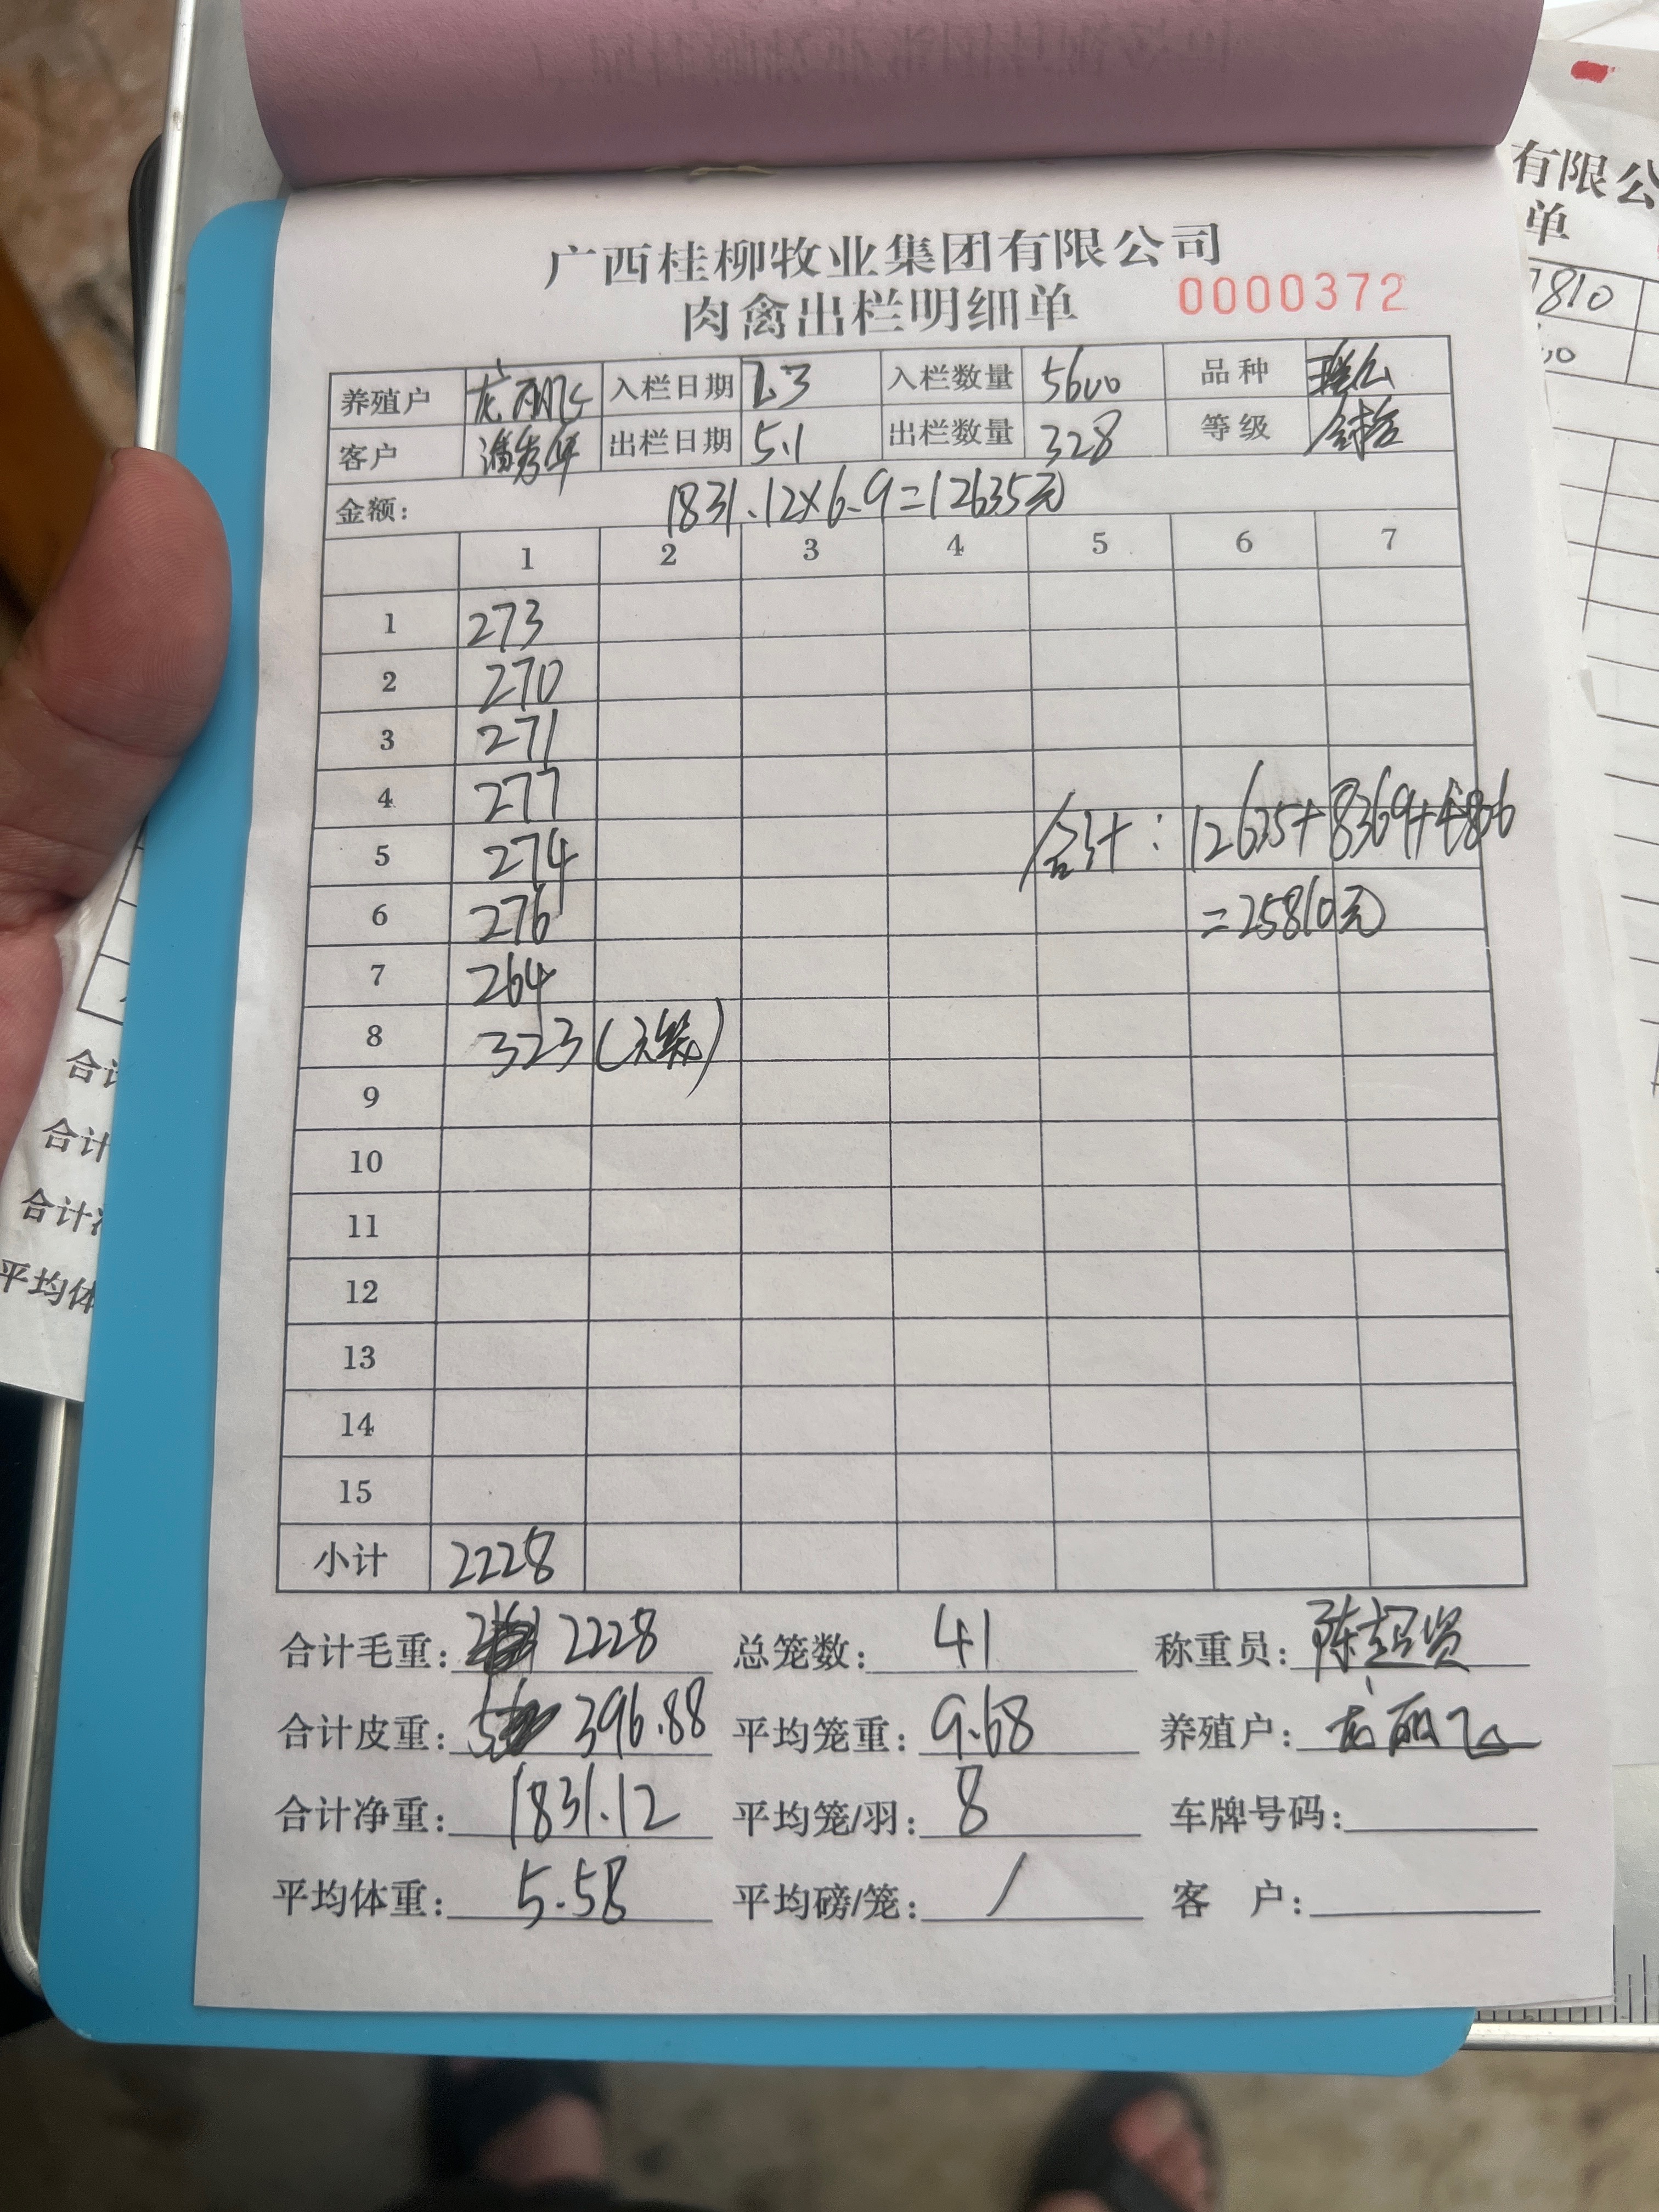 广西桂柳牧业集团有限公司
肉禽出栏明细单 0000372
养殖户 龙丽飞 入栏日期 2.3 入栏数量 5600 品种
客户 潘秀华 出栏日期 5.1 出栏数量 328 等级
金额: 1831.12×6.9=12635元
1 2 3 4 5 6 7
1 273
2 270
3 271
4 277
5 274 合计: 12635+8369+4806
6 276 =25810元
7 264
8 323
9
10
11
12
13
14
15
小计 2228
合计毛重: 2228 总笼数: 41 称重员: 陈超贤
合计皮重: 396.88 平均笼重: 9.68 养殖户: 龙丽飞
合计净重: 1831.12 平均笼/羽: 8 车牌号码:
平均体重: 5.58 平均磅/笼: / 客 户:
有限公
单
1810
合计
合计
合计
平均体